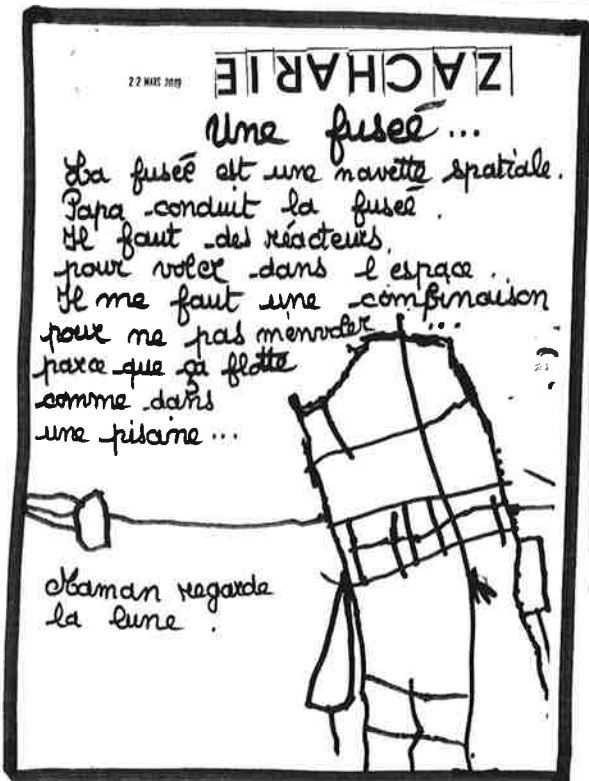 22 MARS 2019
ZACHARIE
Une fuseé...
La fuseé est une navette spatiale.
Papa conduit la fuseé.
Il faut des réacteurs
pour voler dans l espace.
Il me faut une combinaison
pour ne pas m'envoler...
parce que ça flotte
comme dans
une piscine...
Maman regarde
la lune.